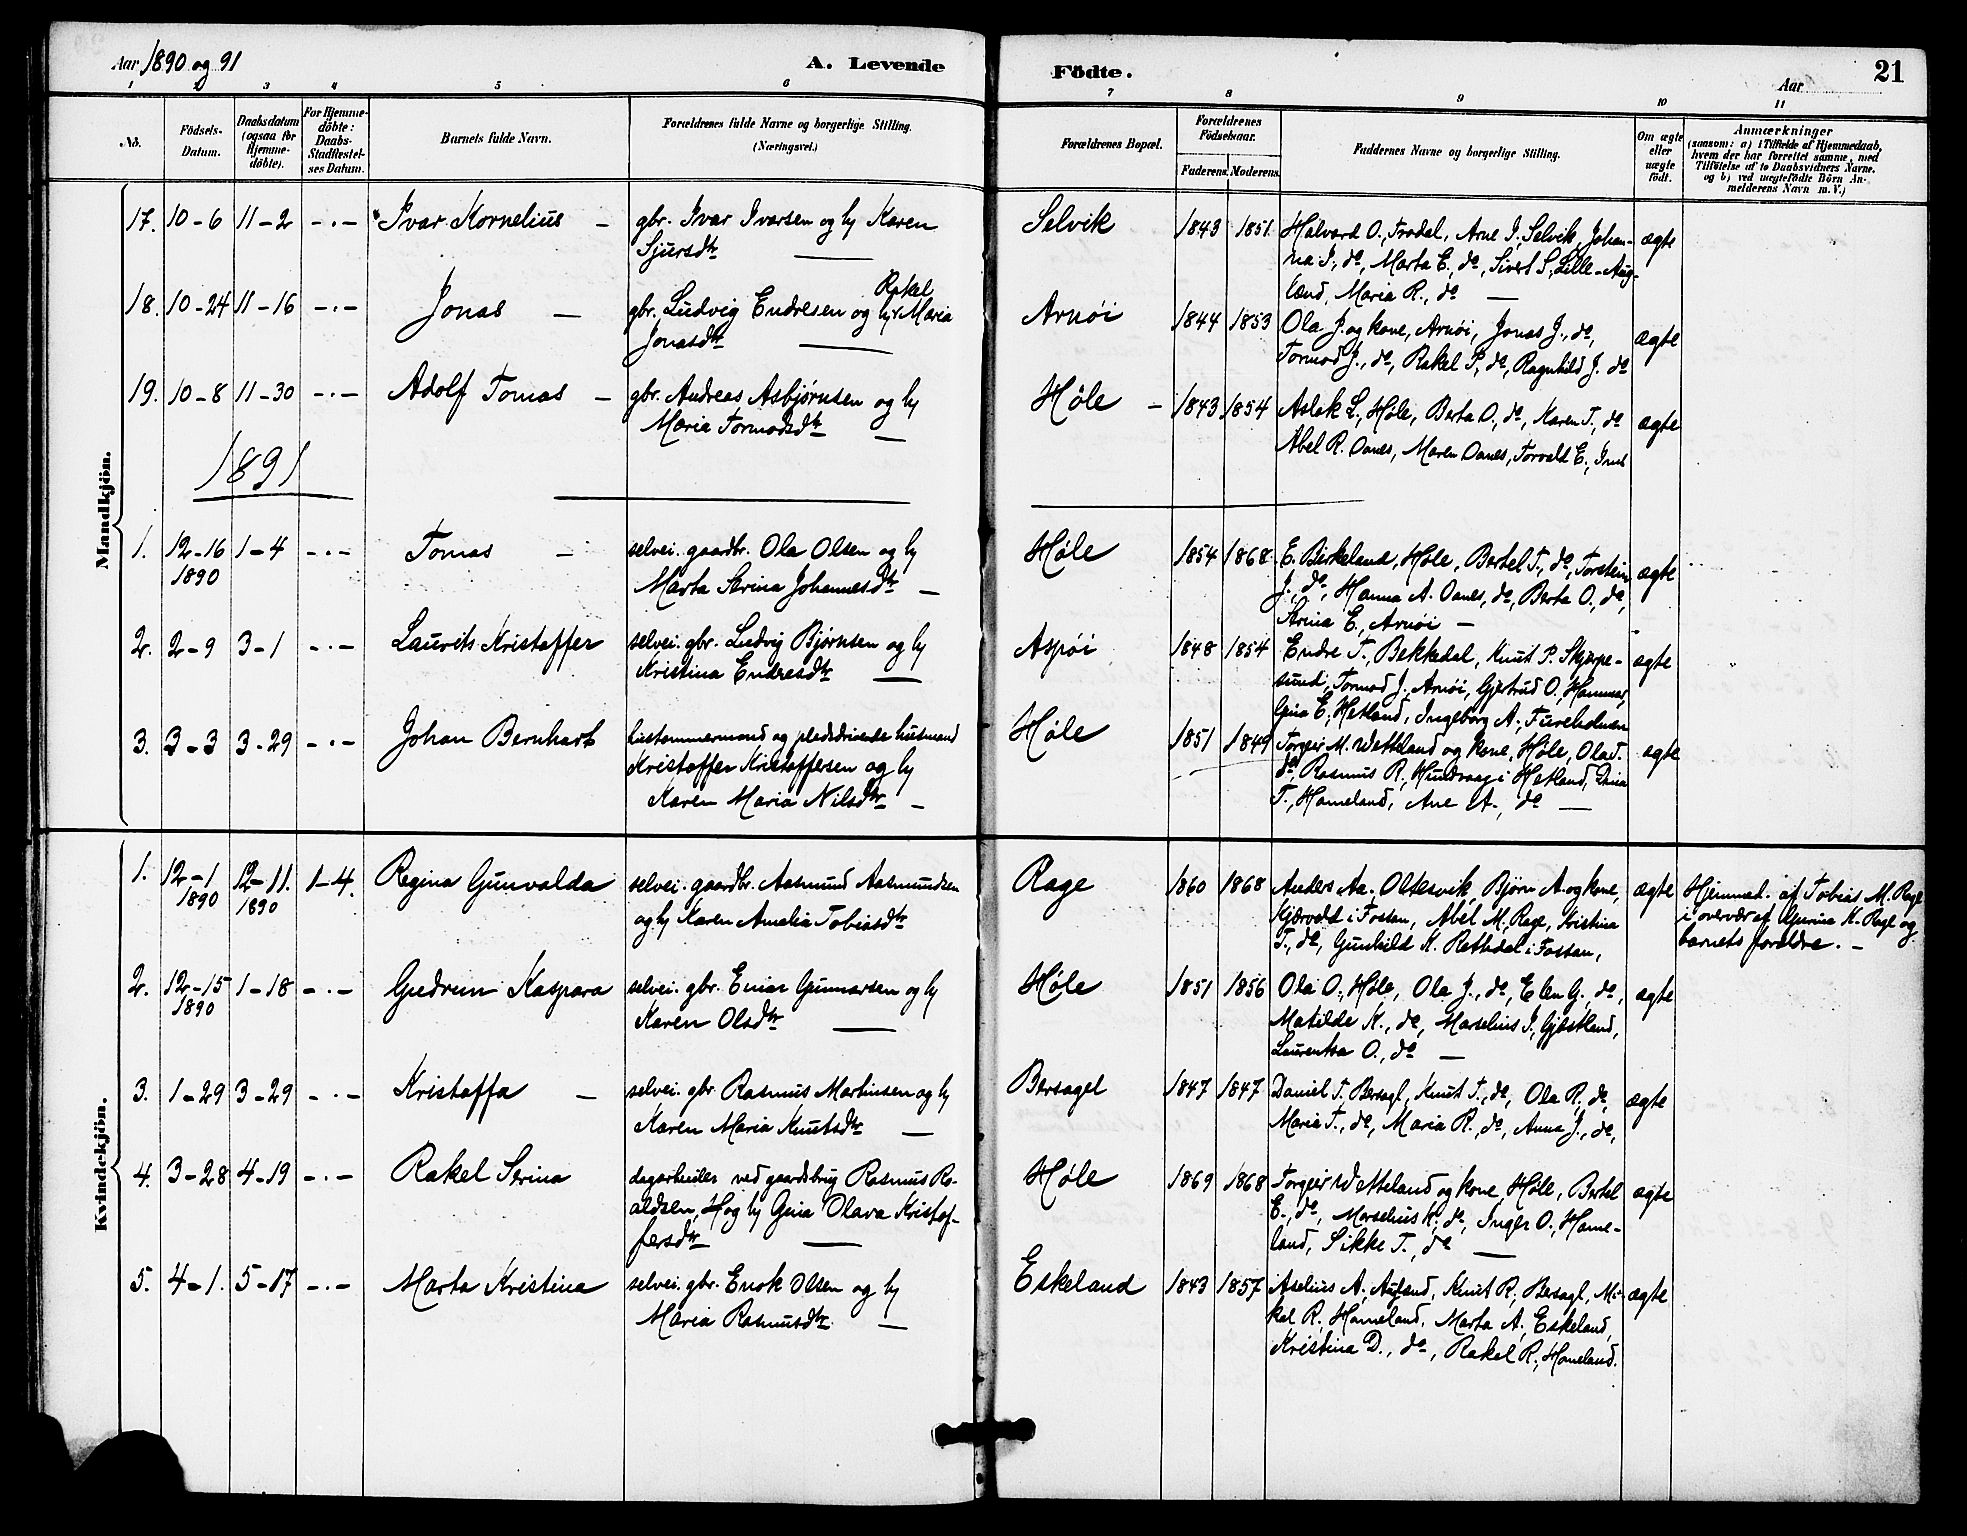 Aar 1890 og 91
A. Levende
Födte.
Aar
21
1 2 3 4 5 6 7 8 9 10 11
No.
Födsels-
Datum.
Daabsdatum
(ogsaa for
Hjemme-
döbte).
For Hjemme-
döbte:
Daabs-
Stadfæstel-
ses Datum.
Barnets fulde Navn.
Forældrenes fulde Navne og borgerlige Stilling.
(Næringsvei.)
Forældrenes Bopæl.
Forældrenes
Födselsaar.
Faderens. Moderens.
Faddernes Navne og borgerlige Stilling.
Om ægte
eller
uægte
födt.
Anmærkninger
(saasom: a) i Tilfælde af Hjemmedaab,
hvem der har forrettet samme, med
Tilföielse af to Daabsvidners Navne.
og b) ved uægtefödte Börn An-
melderens Navn m. V.)
Mandkjön.
17. 10-6 11-2 -.- Ivar Kornelius - gbr. Ivar Ivarsen og hu Karen
Sjursdtr —
Selvik 1843 1851 Halvard O., Frodal, Arne I., Selvik, Johan-
na I., do, Marta E., do, Sivert S., Lille-Aug-
land, Maria R., do —
ægte
18. 10-24 11-16 -.- Jonas - gbr. Ludvig Endresen og hu Rakel Maria
Jonasdtr —
Arnøi 1844 1853 Ola J. og kone, Arnøi, Jonas J., do,
Tormod J., do, Rakel P., do, Ragnhild J. do
ægte
19. 10-8 11-30 -.- Adolf Tomas - gbr. Andreas Asbjørnsen og hu
Maria Tormodsdtr —
Høle - 1843 1854 Aslak L., Høle, Berta O., do, Karen T., do
Abel R. Oanes, Maren Oanes, Torvald E.,
ægte
1891
1. 12-16 1-4 -.- Tomas - selvei. gaardbr. Ola Olsen og hu
1890
Marta Serina Johannesdtr —
Høle 1854 1868 E. Birkeland, Høle, Bertel T., do, Torstein
J., do, Hanna A. Oanes, do, Berta O., do,
Serina E., Arnøi —
ægte
2. 2-9 3-1 -.- Laurits Kristoffer selvei. gbr. Ludvig Bjørnsen og hu
Kristina Endresdtr —
Aspøi 1848 1854 Endre T., Bekkedal, Knut P. Skjørpe-
sund, Tormod J., Arnøi, Gjertrud O., Hammar,
Gina E., Hetland, Ingeborg A., Fureholmen
ægte
3. 3-3 3-29 -.- Johan Bernhart hustømmermand og pladsdrivende husmand
Kristoffer Kristoffersen og hu
Karen Maria Nilsdtr -
Høle 1851 1849 Torgeir M. Wetteland og kone, Høle, Ola T.
do, Rasmus R., Hundvaag i Hetland,
T., Hameland, Ane A., do —
ægte
Kvindekjön.
1. 12-1 12-11. 1-4. Regina Gunvalda selvei. gaardbr. Aasmund Aasmundsen
1890 1890
og hu Karen Amalia Tobiasdtr
Rage 1860 1868 Anders Aa. Oltesvik, Bjørn A. og kone,
Kjørvold i Fossan, Abel M. Rage, Kristina
T., do, Gunhild K. Rettedal i Fossan,
ægte Hjemmed. af Tobias M. Rage
i overvær af K. Rage og
barnets foreldre. -
2. 12-15 1-18 -.- Gudrun Kaspara selvei. gbr. Einar Gunnarsen og hu
1890
Karen Olsdtr —
Høle 1851 1856 Ola O., Høle, Ola J., do, Elen G., do,
Matilde K., do, Marselius I., Gjestland,
Laurentsa O., do —
ægte
3. 1-29 3-29 -.- Kristoffa - selvei. gbr Rasmus Martinsen og hu
Karen Maria Knutsdtr —
Bersagel 1847 1847 Daniel T. Bersagl, Knut T., do, Ola R., do,
Maria T., do, Maria R., do, Anna J., do,
ægte
4. 3-28 4-19 -.- Rakel Serina dagarbeider ved gaardsbrug Rasmus Ro-
aldsen, H og hu Gina Olava Kristof-
fersdtr —
Høle 1869 1868 Torgeir Wetteland og kone, Høle, Bertel
E., do, Marselius K., do, Inger O., Hame-
land, Sikke T., do —
ægte
5. 4-1. 5-17 -.- Marta Kristina selvei. gbr. Enok Olsen og hu
Maria Rasmusdtr. —
Eskeland 1843 1857 Aselius A., Auland, Knut R., Bersagl, Mi-
kal R., Hameland, Marta A., Eskeland,
Kristina D., do, Rakel R., Hameland.
ægte